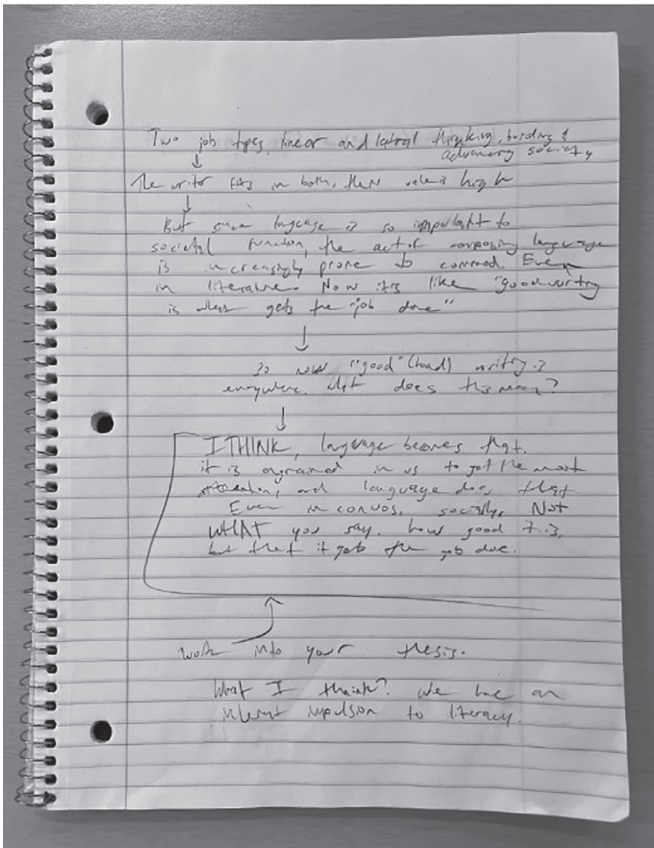 Two job types, linear and lateral thinking, building &
advancing society
↓
The writer fits in both, their value is high
↓
But since language is so important to
societal function, the act of composing language
is increasingly prone to commod. Even
in literature. Now it's like "good writing
is what gets the "job done"
↓
So now "good" (bad) writing is
everywhere. What does this mean?
↓
I THINK, language becomes flat.
it is engrained in us to get the most
attention, and language does that.
Even in convos, socially, Not
WHAT you say, how good it is,
but that it gets the job done.
work into your thesis.
What I think? We have an
inherent repulsion to literacy.